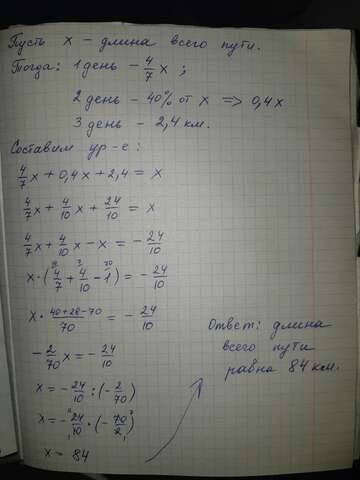 Пусть x – длина всего пути.
Тогда: 1 день – 4/7 x ;
2 день – 40% от x => 0,4x
3 день – 2,4 км.
Составим ур-е:
4/7 x + 0,4x + 2,4 = x
4/7 x + 4/10 x + 24/10 = x
4/7 x + 4/10 x – x = – 24/10
x·(4/7 + 4/10 – 1) = – 24/10
x · (40+28-70)/70 = – 24/10
– 2/70 x = – 24/10
x = – 24/10 : (– 2/70)
x = – 24/10 · (– 70/2)
x = 84
Ответ: длина
всего пути
равна 84 км.